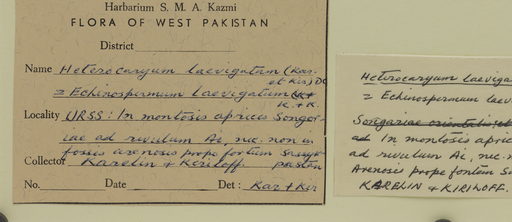 Harbarium S. M. A. Kazmi
FLORA OF WEST PAKISTAN
District
Name Heterocaryum laevigatum (Kar. et Kir.) DC
= Echinospermum laevigatum K + K
Locality URSS: In montosis apricis Songor-
iae ad rivulum Ai, nec non in
fossis arenosis prope fontem
Collector Karelin & Kiriloff
No. Date Det: Kar + Kir
Heterocaryum laeviga
= Echinospermum laev
Songariae orientalis et
ad In montosis apric
ad rivulum Ai, nec n
Arenosis prope fontem S
KARELIN & KIRILOFF.